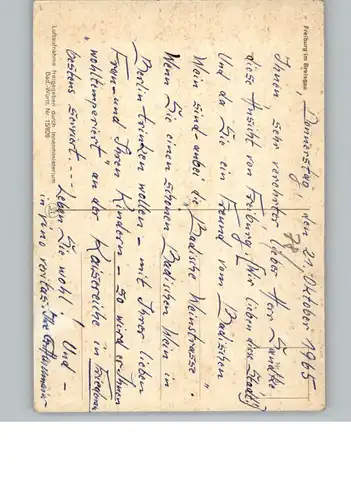 Freiburg im Breisgau
Donnerstag, den 21. Oktober 1965
Ihnen sehr verehrter lieber Herr
diese Ansicht von Freiburg! (Wir lieben diese Stadt!)
Und da Sie ein Freund vom Badischen
Wein sind anbei die "Badische Weinstrasse".
Wenn Sie einen schönen Badischen Wein in
Berlin trinken wollen - mit Ihrer lieben
Frau - und Ihren Kindern - so wird er Ihnen
"wohltemperiert" an der Kaisereiche in Friedenau
bestens serviert... Leben Sie wohl! Und -
in vino veritas. Ihre
Luftaufnahme freigegeben durch Innenministerium
Bad.-Württ. Nr.